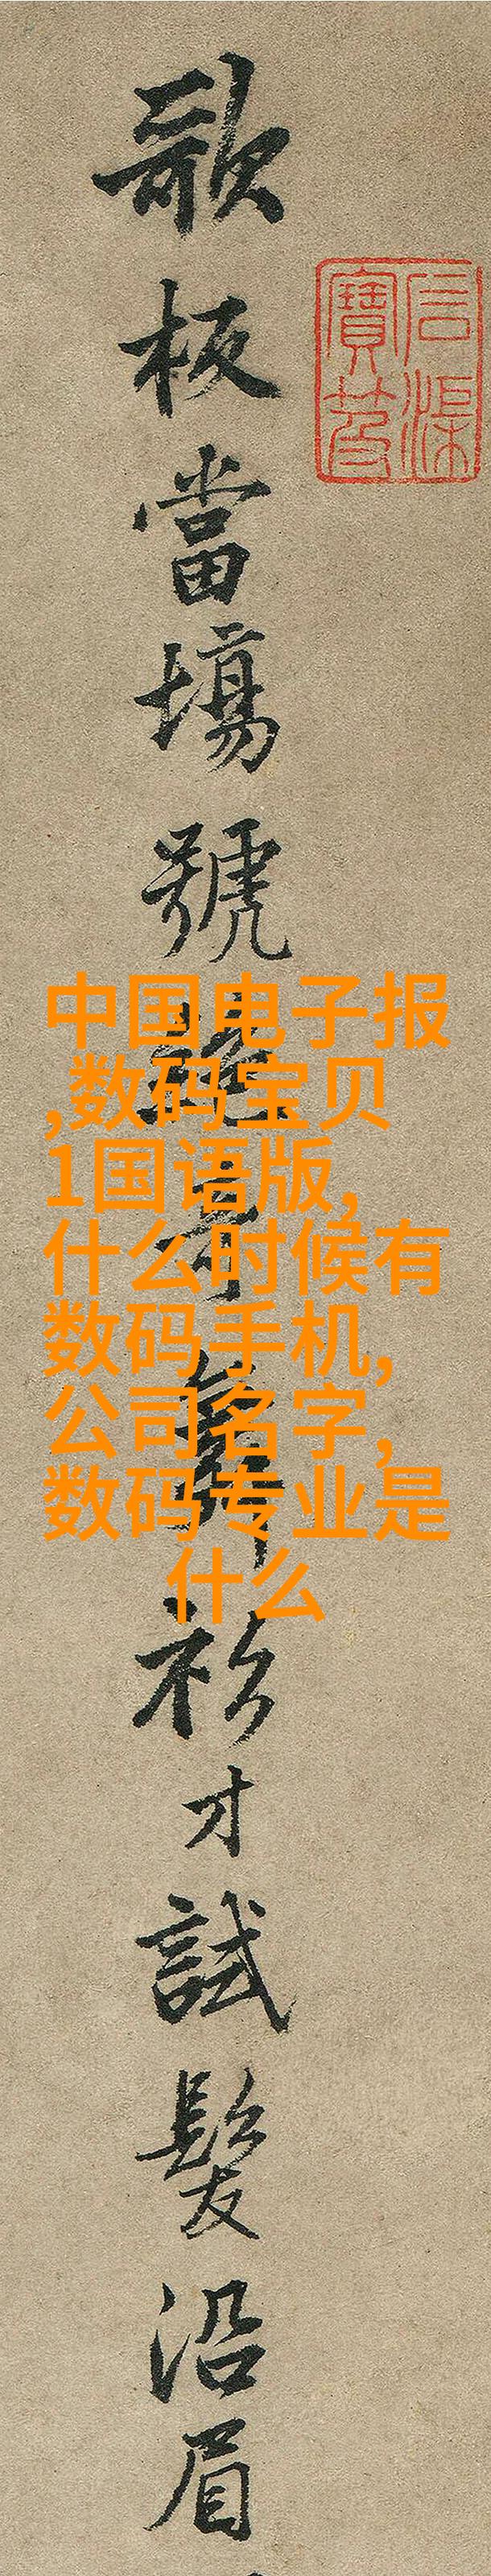 歌板當場號絕奇舞衫才試髮沿眉
中国电子报
,数码宝贝
1国语版,
什么时候有
数码手机,
公司名字,
数码专业是
什么